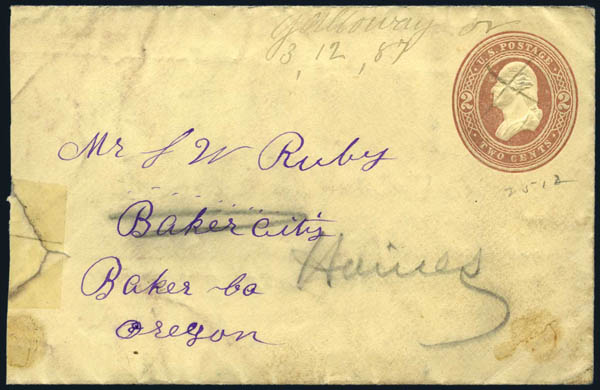 Galloway or
3, 12, 87
U.S. POSTAGE
2 2
TWO CENTS
2512
Mr J W Ruby
Baker City
Haines
Baker Co
Oregon